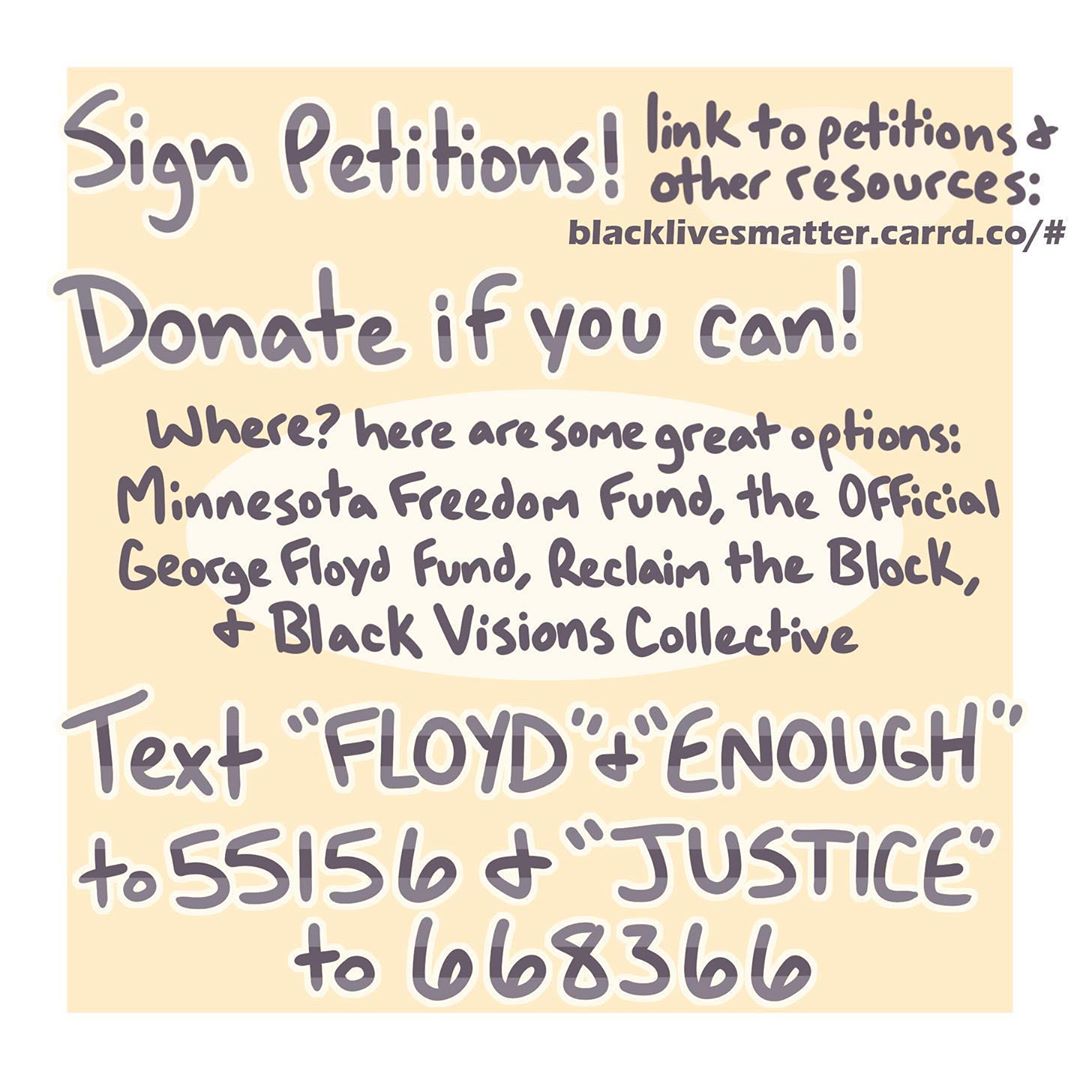 Sign Petitions!
link to petitions &
other resources:
blacklivesmatter.carrd.co/#
Donate if you can!
Where? here are some great options:
Minnesota Freedom Fund, the Official
George Floyd Fund, Reclaim the Block,
& Black Visions Collective
Text "FLOYD" & "ENOUGH"
to 55156 & "JUSTICE"
to 668366